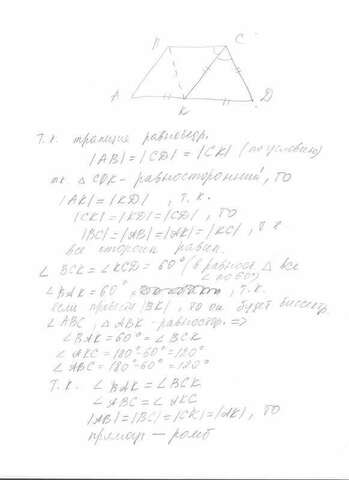 B C
A K D
т.к. трапеция равнобедр.
|AB| = |CD| = |CK| (по условию)
тк. △ CDK - равносторонний, то
|AK| = |KD|, т.к.
|CK| = |KD| = |CD|, то
|BC| = |AB| = |AK| = |KC|, т.к.
все стороны равны.
∠ BCK = ∠ KCD = 60° (в равнос. △ все ∠ по 60°)
∠ BAK = 60°, т.к.
если провести |BK|, то он будет биссектр.
∠ ABC, △ ABK - равностор. =>
∠ BAK = 60° = ∠ BCK
∠ AKC = 180° - 60° = 120°
∠ ABC = 180° - 60° = 120°
т.к. ∠ BAK = ∠ BCK
∠ ABC = ∠ AKC
|AB| = |BC| = |CK| = |AK|, то
— ромб